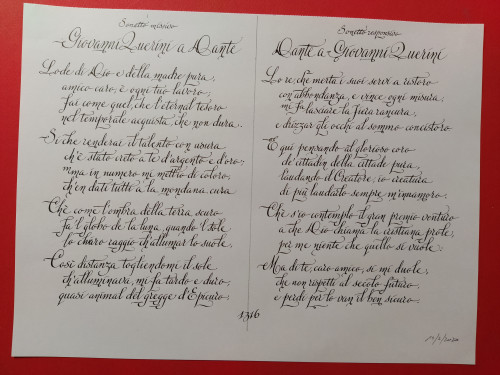 Sonetto missivo
Giovanni Querini a Dante
Lode di Dio e della madre pura,
amico caro, è ogni tuo lavoro;
fai come quel, che l'eternal tesoro
nel temporale acquista, che non dura.
Sì che renderai il talento con usura
ch'è stato creto a te d'argento e d'oro;
mma in numero mi metto di coloro
ch'en dati tutti a la mondana cura
Chè come l'ombra della terra scuro
fa 'l globo de la luna, quando 'l sole
lo charo raggio ch'allumar lo suole,
Così distanza togliendomi il sole
ch'alluminava, mi fa tardo e duro,
quasi animal del gregge d'Epicuro.
Sonetto responsivo
Dante a Giovanni Querini
Lo re, che merta i suoi servi a ristoro
con abbondanza, e vince ogni misura,
mi fa lasciare la fiera rancura,
e drizzar gli occhi al sommo concistoro
E qui pensando al glorioso coro
de' cittadin della cittade pura,
laudando il Creatore, io creatura
di più laudarlo sempre m'innamoro.
Chè s'io contemplo il gran premio venturo
a che Dio chiama la cristiana prole,
per me niente che quello si vuole:
Ma di te, caro amico, sì mi duole,
che non rispetti al secolo futuro,
e perdi per lo van il ben sicuro.
1316